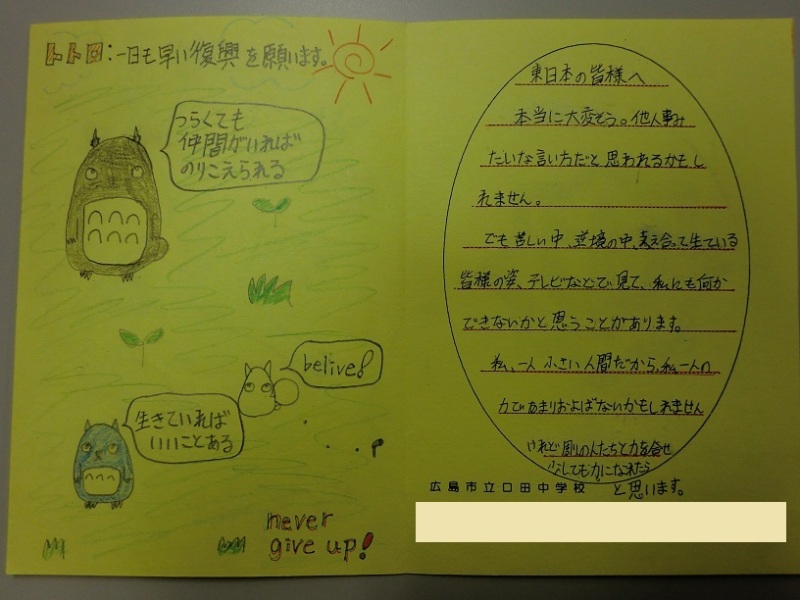 トトロ:一日も早い復興を願います。
つらくても
仲間がいれば
のりこえられる
belive!
生きていれば
いいことある
never
give up!
東日本の皆様へ
本当に大変そう。他人事み
たいな言い方だと思われるかもし
れません。
でも苦しい中、逆境の中、支え合って生ている
皆様の姿、テレビなどで見て、私にも何か
できないかと思うことがあります。
私、一人小さい人間だから、私一人の
力であまりおよばないかもしれません
けれど周りの人たちと力を合せ
少しでも力になれたら
と思います。
広島市立口田中学校